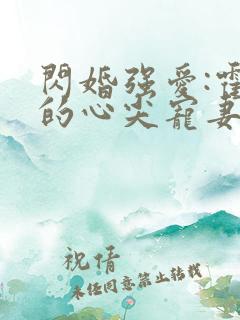 閃婚強愛:霍
的心尖寵妻
祝倩
未任同意禁止转载